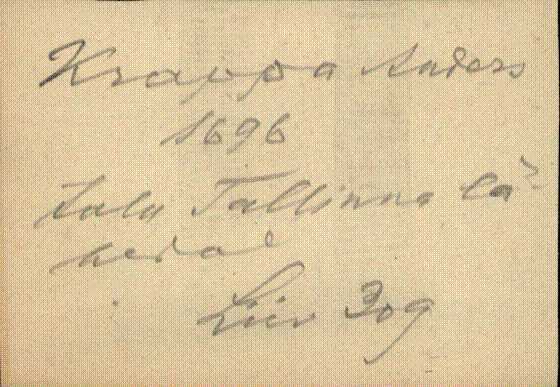 Krappa Anders
1696
talu Tallinna lä-
hedal
Liiv 309